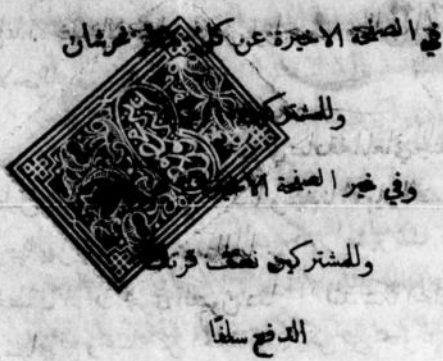 في الصفحة الاخيرة عن كل غرشان
وللمشتركين
وفي غير الصفحة الاخيرة
وللمشتركين نصف فرنك
الدفع سلفًا